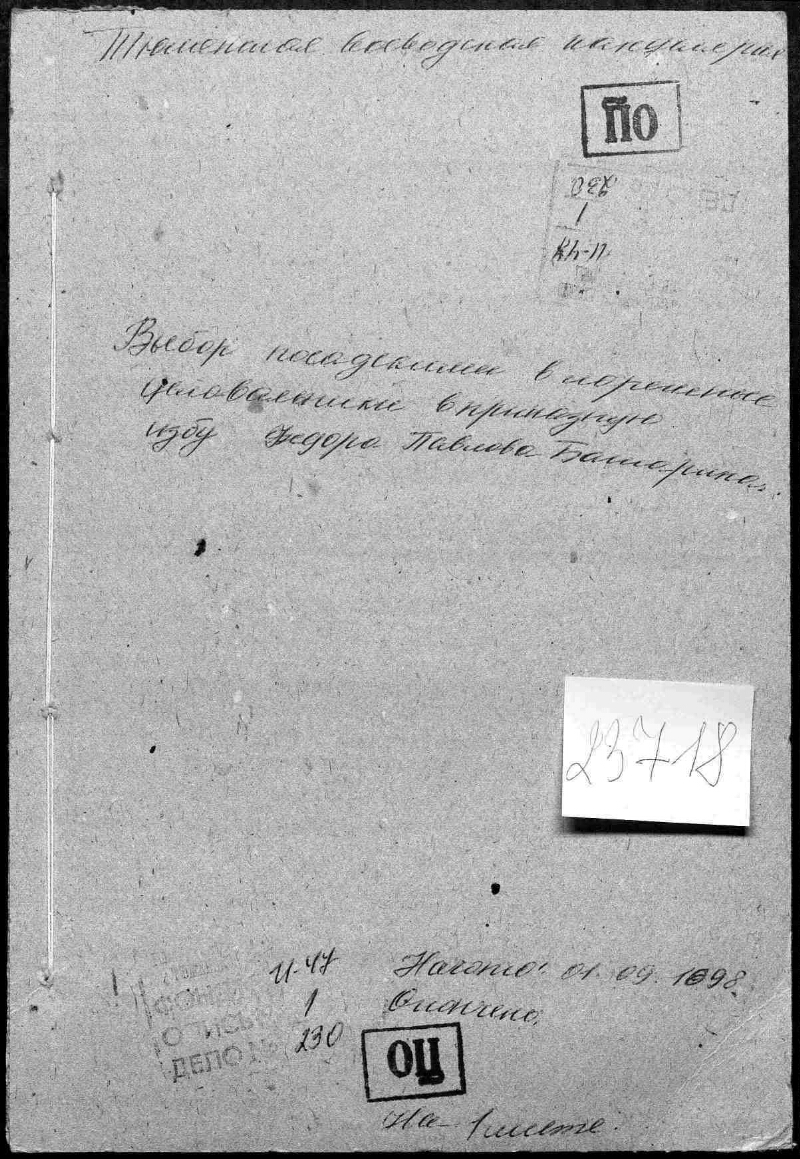 Тюменская воеводская канцелярия
ОЦ
230
1
И-47
Выбор посадскими в ларешные
целовальники в приказную
избу Федора Павлова Башарина.
23718
И-47 Начато: 01.09.1698
ФОНД 1 Окончено
ОПИСЬ
ДЕЛО № 230
ОЦ
На 1 листе.